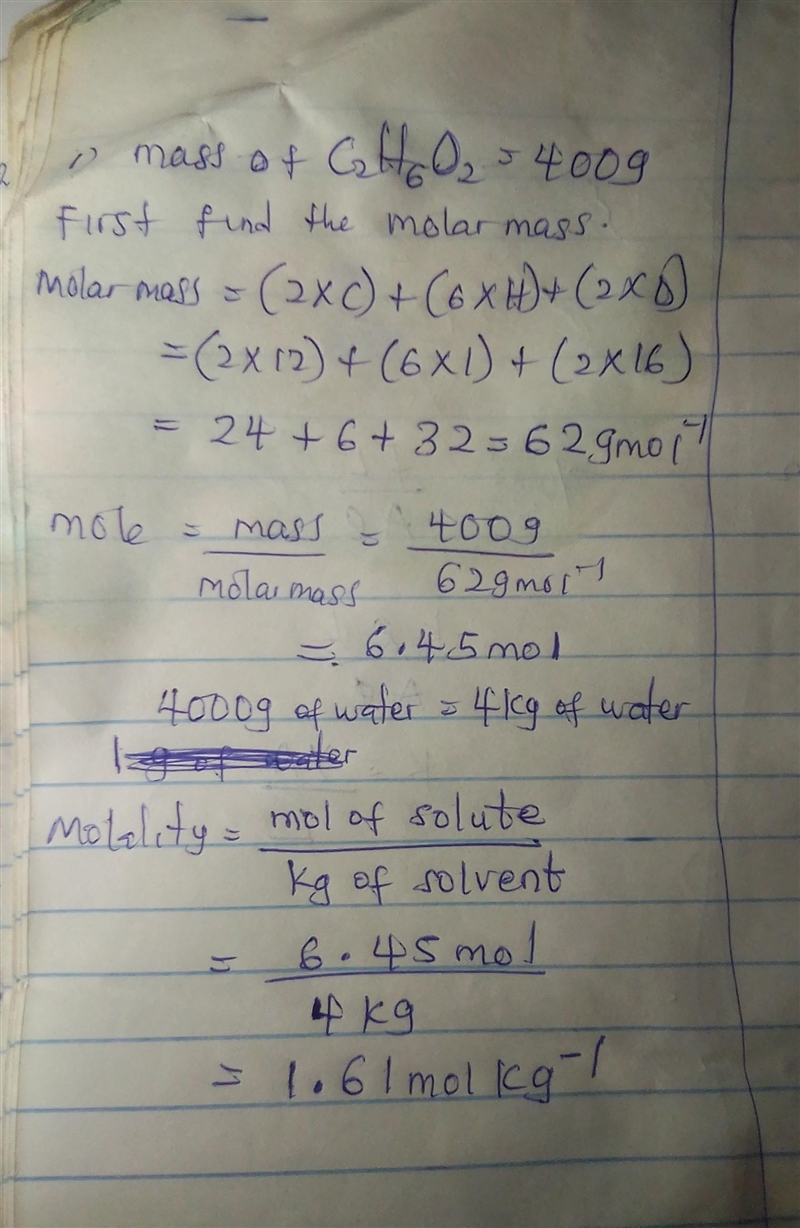 1) mass of C2H6O2 = 400g
First find the molar mass.
Molar mass = (2×C)+(6×H)+(2×O)
=(2×12)+(6×1)+(2×16)
= 24+6+32=62gmol⁻¹
mole = mass/molar mass = 400g/62gmol⁻¹
= 6.45mol
4000g of water = 4kg of water
Molality = mol of solute/kg of solvent
= 6.45mol/4kg
= 1.61molkg⁻¹